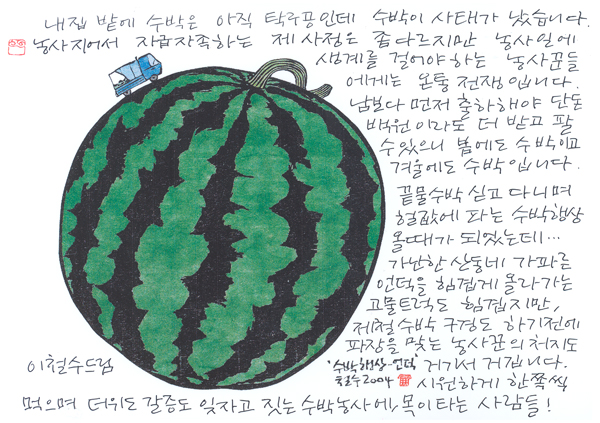 내집 밭에 수박은 아직 탁구공인데 수박이 사태가 났습니다.
농사지어서 자급자족하는 제 사정은 좀 다르지만 농사일에
생계를 걸어야 하는 농사꾼들
에게는 온통 전쟁입니다.
남보다 먼저 출하해야 단돈
백원이라도 더 받고 팔
수 있으니 봄에도 수박이고
겨울에도 수박입니다.
끝물수박 싣고 다니며
헐값에 파는 수박행상
올때가 되었는데…
가난한 산동네 가파른
언덕을 힘겹게 올라가는
고물트럭도 힘겹지만,
제철수박 구경도 하기전에
파장을 맞는 농사꾼의 처지도
거기서 거깁니다.
시원하게 한쪽씩
먹으며 더위도 갈증도 잊자고 짓는 수박농사에, 목이 타는 사람들!
이철수드림
'수박행상-언덕'
철수2004